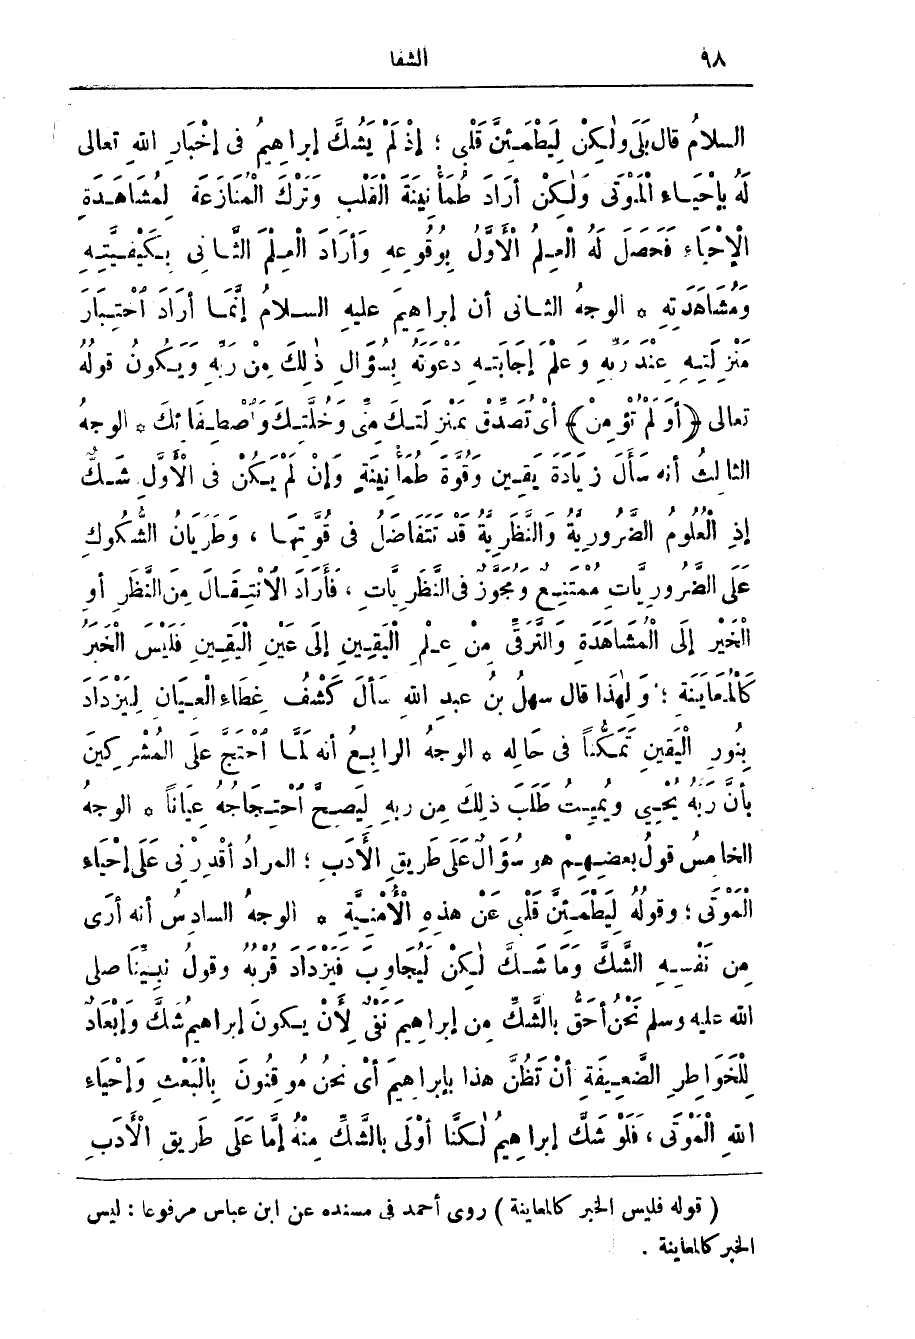 ٩٨
الشفا
السلامُ قال بَلَى ولٰكِنْ لِيَطْمَئِنَّ قَلْبِى ؛ إذْ لَمْ يَشُكَّ إبراهِيمُ فى إخْبَارِ اللهِ تعالى
لَهُ بإحْيَاءِ الْمَوْتَى وَلٰكِنْ أرَادَ طُمَأْنِينَةَ الْقَلْبِ وَتَرْكَ الْمُنَازَعَةِ لِمُشَاهَدَةِ
الْإحْيَاءِ فَحَصَلَ لَهُ الْعِلْمُ الْأَوَّلُ بِوُقُوعِهِ وَأرَادَ الْعِلْمَ الثَّانى بِكَيْفِيَّتِهِ
وَمُشَاهَدَتِهِ * الوجهُ الثانى أن إبراهِيمَ عليهِ السلامُ إنَّمَا أرَادَ اخْتِبَارَ
مَنْزِلَتِهِ عِنْدَ رَبِّهِ وَعِلْمَ إجَابَتِهِ دَعْوَتَهُ بِسُؤَالِ ذٰلِكَ مِنْ رَبِّهِ وَيَكُونُ قولُهُ
تعالى ﴿أوَ لَمْ تُؤْمِنْ﴾ أىْ تُصَدِّقْ بِمَنْزِلَتِكَ مِنِّى وَخُلَّتِكَ وَاصْطِفَائِكَ * الوجهُ
الثالثُ أنه سَأَلَ زِيَادَةَ يَقِينٍ وَقُوَّةَ طُمَأْنِينَةٍ وَإنْ لَمْ يَكُنْ فى الْأَوَّلِ شَكٌّ
إذِ الْعُلُومُ الضَّرُورِيَّةُ وَالنَّظَرِيَّةُ قَدْ تَتَفَاضَلُ فى قُوَّتِهَا ، وَطَرَيَانُ الشُّكُوكِ
عَلَى الضَّرُورِيَّاتِ مُمْتَنِعٌ وَمُجَوَّزٌ فى النَّظَرِيَّاتِ ، فَأَرَادَ الِانْتِقَالَ مِنَ النَّظَرِ أو
الْخَبَرِ إلَى الْمُشَاهَدَةِ وَالتَّرَقِّى مِنْ عِلْمِ الْيَقِينِ إلَى عَيْنِ الْيَقِينِ فَلَيْسَ الْخَبَرُ
كَالْمُعَايَنَةِ ؛ وَلِهٰذَا قال سهلُ بنُ عبدِ اللهِ سَأَلَ كَشْفَ غِطَاءِ الْعِيَانِ لِيَزْدَادَ
بِنُورِ الْيَقِينِ تَمَكُّناً فى حَالِهِ * الوجهُ الرابعُ أنه لَمَّا احْتَجَّ عَلَى الْمُشْرِكِينَ
بأنَّ رَبَّهُ يُحْيِى ويُمِيتُ طَلَبَ ذٰلِكَ مِن ربهِ لِيَصِحَّ احْتِجَاجُهُ عِيَاناً * الوجهُ
الخامسُ قولُ بعضِهِمْ هو سُؤَالٌ عَلَى طَرِيقِ الأدَبِ ؛ المرادُ أقْدِرْنى عَلَى إحْيَاءِ
الْمَوْتَى ؛ وقولُهُ لِيَطْمَئِنَّ قَلْبِى عَنْ هذِهِ الْأُمْنِيَّةِ * الوجهُ السادسُ أنه أرَى
مِن نَفْسِهِ الشَّكَّ وَمَا شَكَّ لٰكِنْ لِيُجَاوِبَ فَيَزْدَادَ قُرْبُهُ وقولُ نبيِّنَا صلى
الله عليه وسلم نَحْنُ أحَقُّ بالشَّكِّ مِن إبراهِيمَ نَفْىٌ لِأَنْ يكونَ إبراهيمُ شَكَّ وَإبْعَادٌ
لِلْخَوَاطِرِ الضَّعِيفَةِ أنْ تَظُنَّ هذا بإبراهِيمَ أىْ نحنُ مُوقِنُونَ بِالْبَعْثِ وَإحْيَاءِ
اللهِ الْمَوْتَى ، فَلَوْ شَكَّ إبراهِيمُ لَكُنَّا أوْلَى بالشَّكِّ مِنْهُ إمَّا عَلَى طَرِيقِ الْأدَبِ
( قوله فليس الخبر كالمعاينة ) روى أحمد فى مسنده عن ابن عباس مرفوعا : ليس
الخبر كالمعاينة .